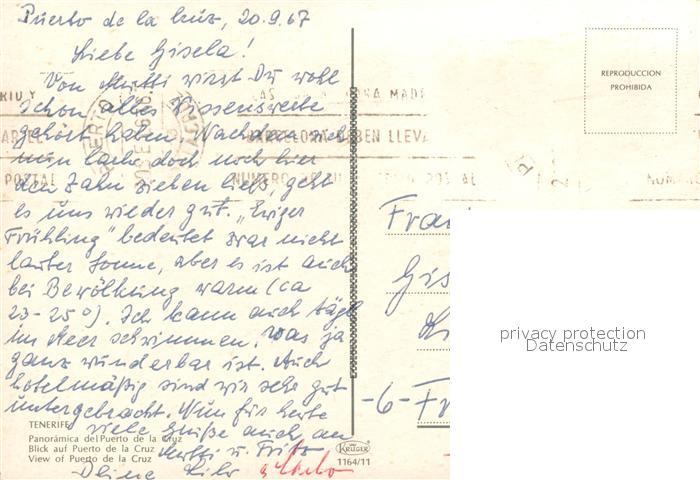 Puerto de la Cruz, 20.9.67
Liebe Gisela!
Von Mutti wirst Du wohl
schon alles Wissenswerte
gehört haben. Nachdem sich
nun doch noch hier
den Zahn ziehen ließ, geht
es uns wieder gut. „Ewiger
Frühling" bedeutet zwar nicht
lauter Sonne, aber es ist auch
bei Bewölkung warm (ca
23-25°). Ich kann auch tägl.
im Meer schwimmen, was ja
ganz wunderbar ist. Auch
hotelmäßig sind wir sehr gut
untergebracht. Nun für heute
viele Grüße auch an
Mutti u. Fritz
Deine
TENERIFE
Panorámica del Puerto de la Cruz
Blick auf Puerto de la Cruz
View of Puerto de la Cruz
KRÜGER
1164/11
REPRODUCCION
PROHIBIDA
PUERTO
BARCELONA DEBEN LLEVA
POSTAL
NUMERO
Frau
Gis
-6-Fr
privacy protection
Datenschutz